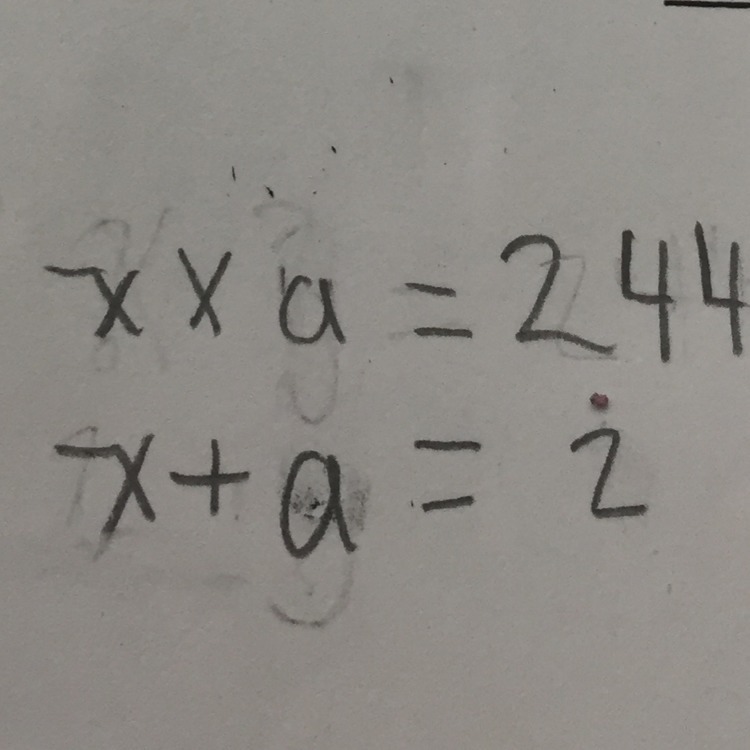 x × a = 244
x + a = 2